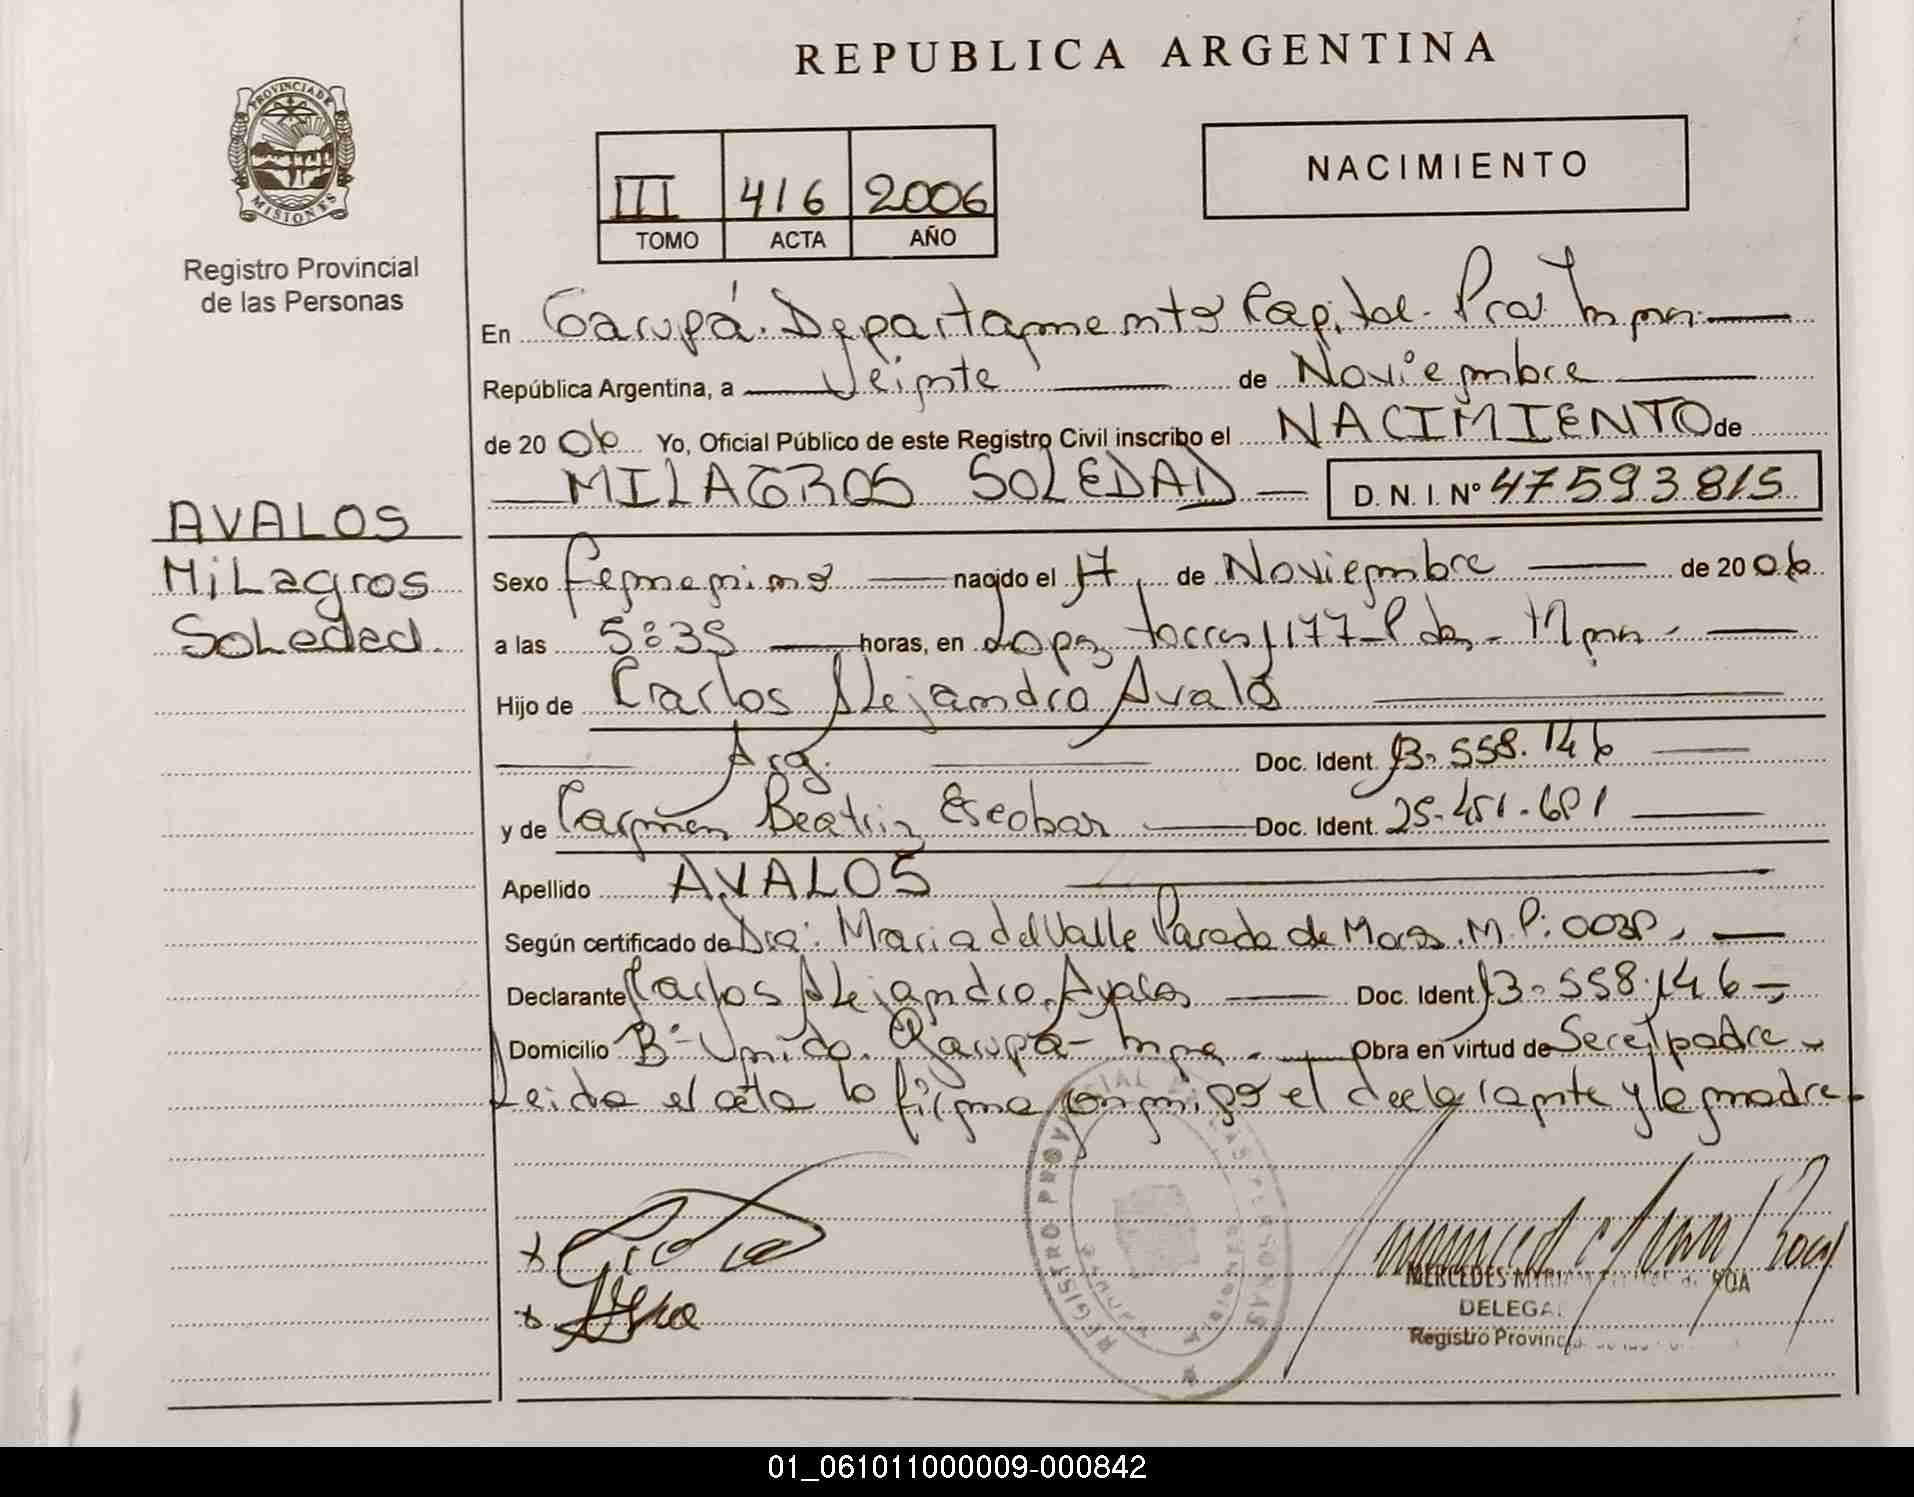 REPUBLICA ARGENTINA
PROVINCIA DE MISIONES
Registro Provincial
de las Personas
NACIMIENTO
III 416 2006
TOMO ACTA AÑO
En Garupá. Departamento Capital. Pcia. Mnes.
República Argentina, a Veinte de Noviembre
de 20 06 Yo, Oficial Público de este Registro Civil inscribo el NACIMIENTO de
MILAGROS SOLEDAD D. N. I. Nº 47593815
AVALOS
Milagros
Soledad
Sexo femenino nacido el 17 de Noviembre de 20 06
a las 5:35 horas, en Lopez Torres 1177 - Mnes.
Hijo de Carlos Alejandro Avalos
Arg. Doc. Ident. 13.558.146
y de Carmen Beatriz Escobar Doc. Ident. 25.451.681
Apellido AVALOS
Según certificado de Dra: Maria del Valle Parada de M.P:
Declarante Carlos Alejandro Avalos Doc. Ident. 13.558.146
Domicilio Bº Unido. Garupá - Mnes. Obra en virtud de Ser el padre
Leida el acta la firma conmigo el declarante y la madre
REGISTRO PROVINCIAL DE LAS PERSONAS
MERCEDES ROA
DELEGA
Registro Provinc
01_061011000009-000842